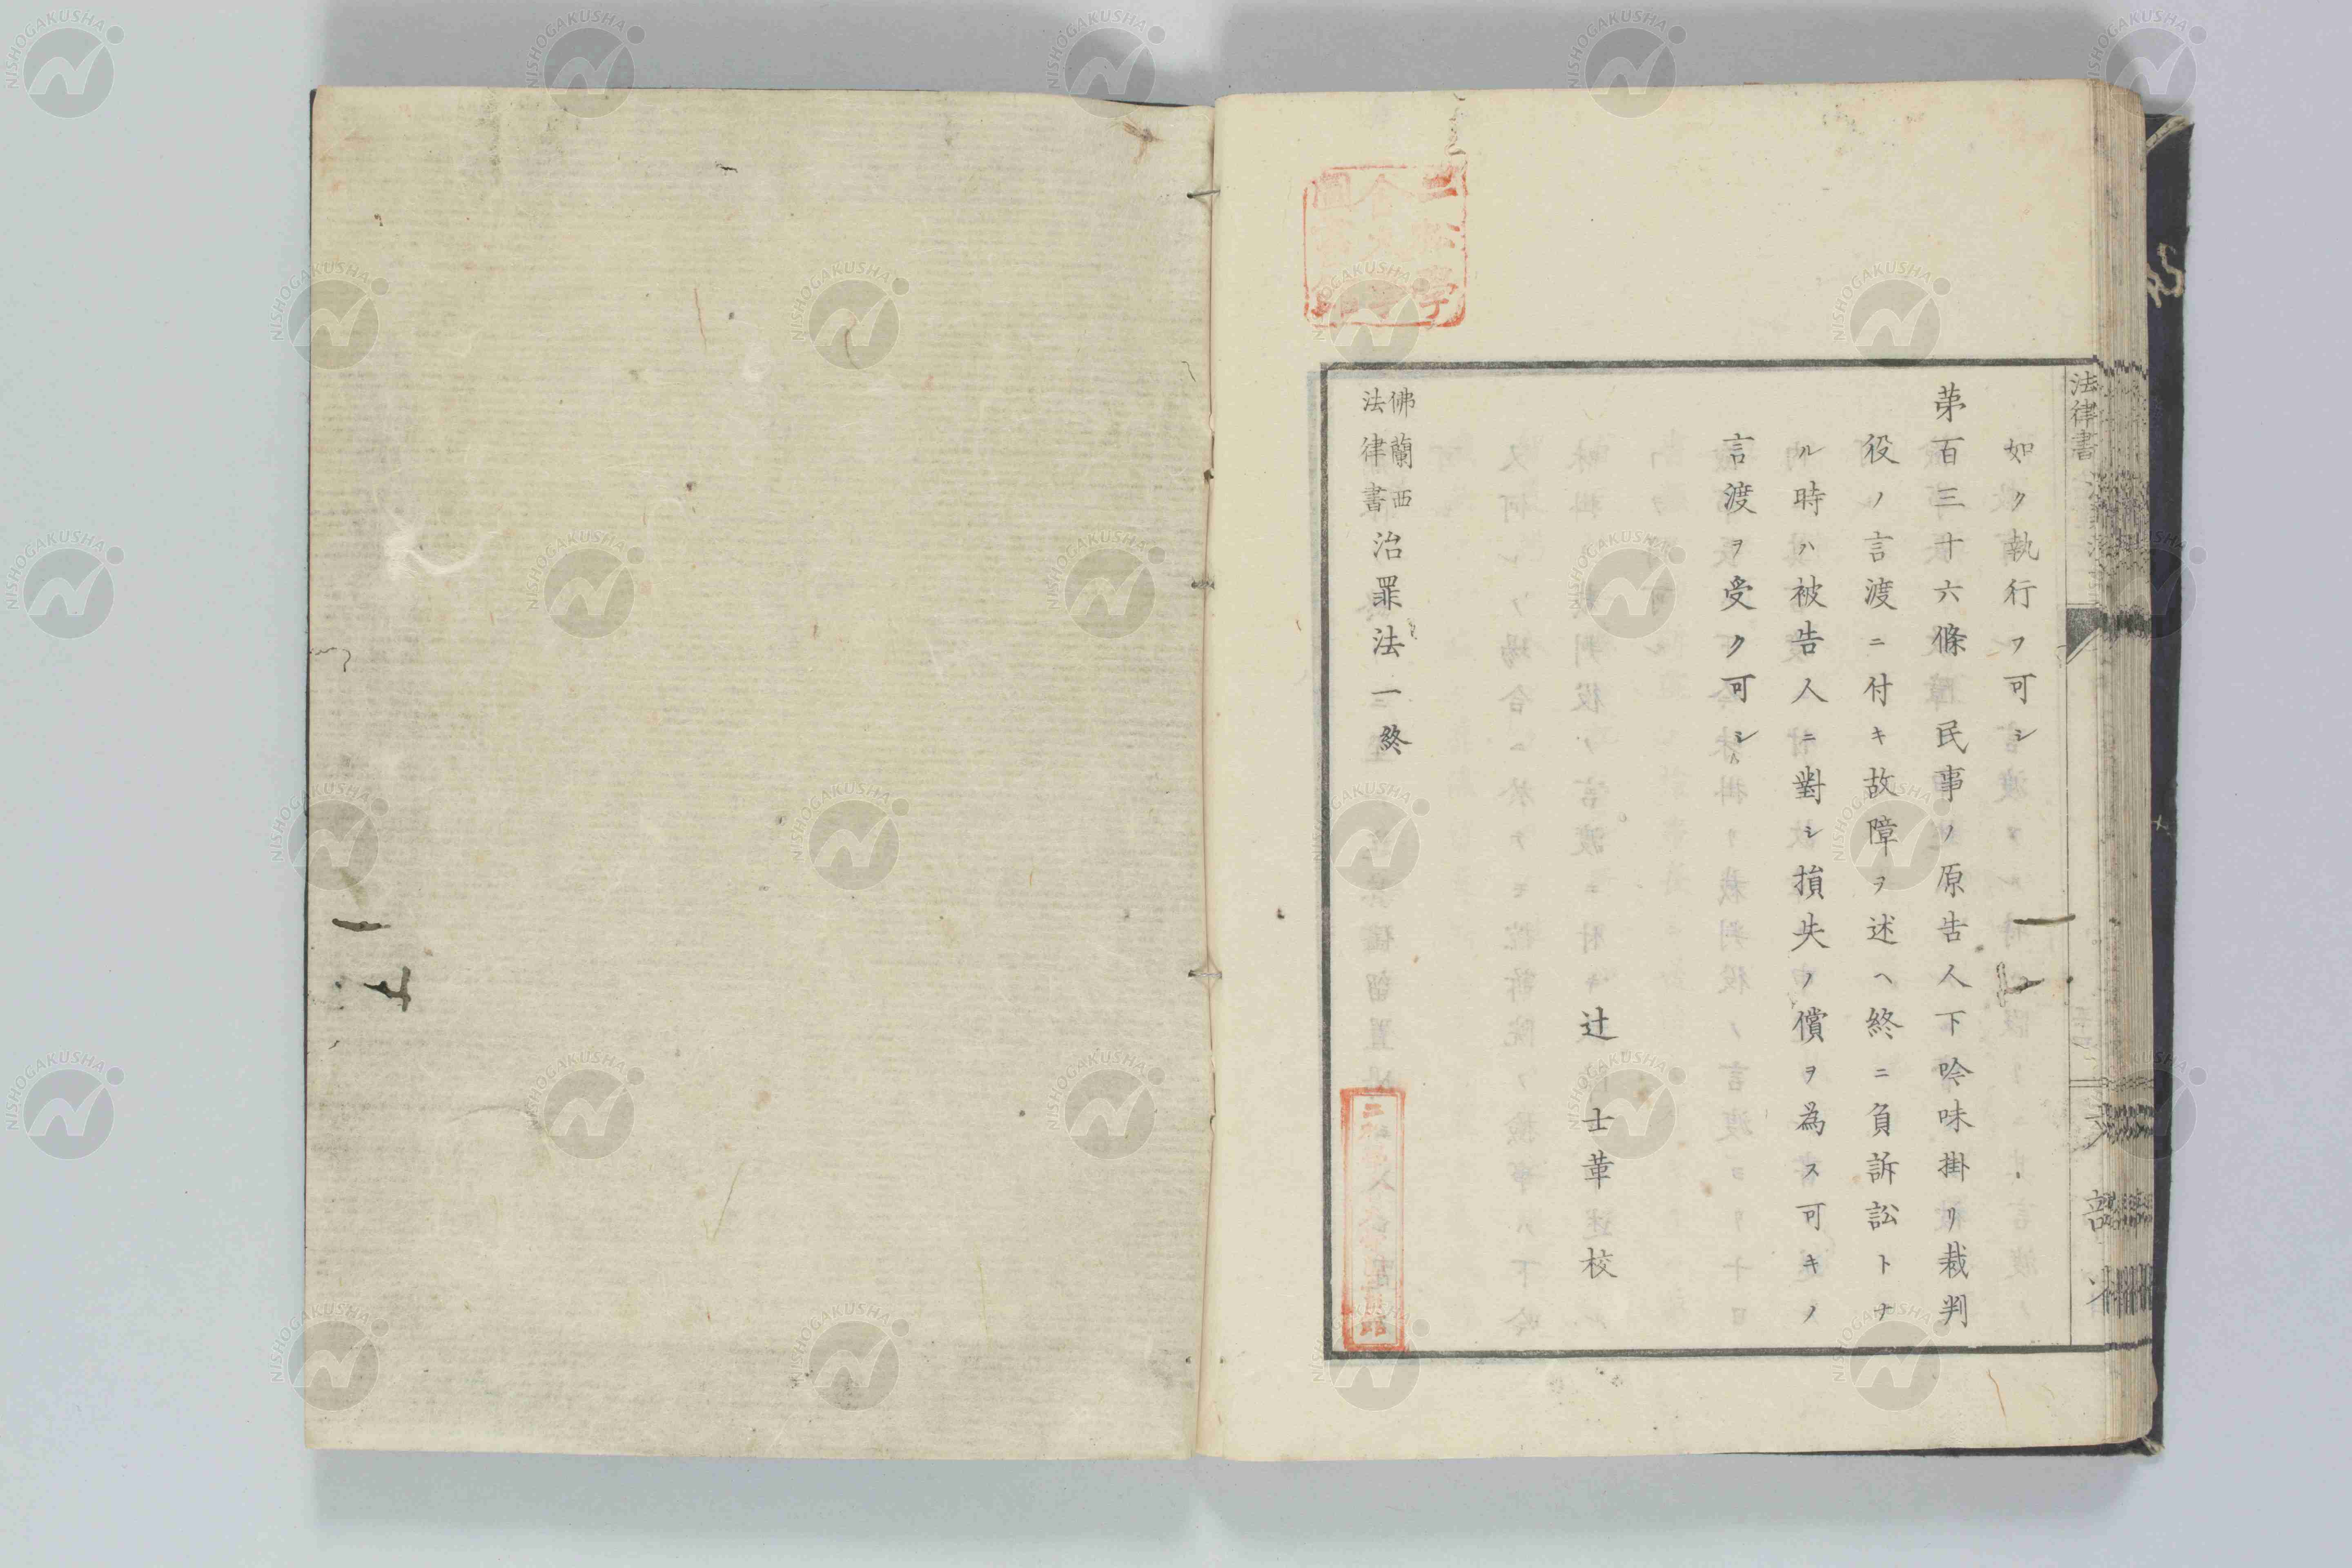 法律書
如ク執行フ可シ
苐百三十六條 民事ノ原告人下吟味掛リ裁判
役ノ言渡ニ付キ故障ヲ述ヘ終ニ負訴訟トナ
ル時ハ被告人ニ對シ損失ノ償ヲ為ス可キノ
言渡ヲ受ク可シ
辻 士革校
佛蘭西
法律書
治罪法一終
文部省
二松学
舎大学
圖書館
NISHOGAKUSHA